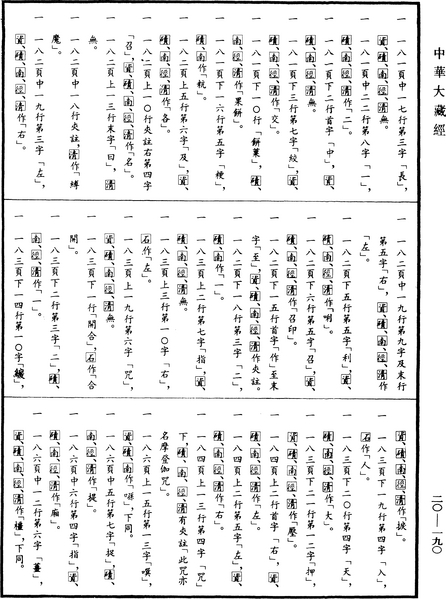 中華大藏經
一 一八一頁中一七行第三字「長」,
資、磧、南、徑、清無。
一 一八一頁中二二行第八字「一」,
磧、南、徑、清作「二」。
一 一八一頁下二行首字「中」,資、
磧、南、徑、清無。
一 一八一頁下三行第七字「絞」,資、
磧、南、徑、清作「交」。
一 一八一頁下一〇行「餅菓」,磧、
南、徑、清作「果餅」。
一 一八一頁下一六行第五字「梗」,
磧、南、徑、清作「秔」。
一 一八二頁上五行第六字「及」,資、
磧、南、徑、清作「各」。
一 一八二頁上一〇行夾註右第四字
「召」,資、磧、南、徑、清作「名」。
一 一八二頁上一三行末字「曰」,清
無。
一 一八二頁中一八行夾註,清作「縛
魔」。
一 一八二頁中一九行第三字「左」,
資、磧、南、徑、清作「右」。
一 一八二頁中一九行第九字及末行
第五字「右」,資、磧、南、徑、清作
「左」。
一 一八二頁下五行第五字「利」,資、
磧、南、徑、清作「唎」。
一 一八二頁下六行第五字「召」,資、
磧、南、徑、清作「召印」。
一 一八二頁下一五行首字「作」至末
字「至」,資、磧、南、徑、清作夾註。
一 一八二頁下一八行第三字「二」,
磧、南作「一」。
一 一八三頁上二行第七字「指」,資、
磧、南、徑、清無。
一 一八三頁上三行第一〇字「右」,
石作「左」。
一 一八三頁上一九行第六字「咒」,
資、磧、南、徑、清無。
一 一八三頁下一行「開合」,石作「合
開」。
一 一八三頁下二行第三字「二」,磧、
南、徑、清作「一」。
一 一八三頁下一四行第一〇字「纔」,
資、磧、南、徑、清作「披」。
一 一八三頁下一九行第四字「入」,
石作「人」。
一 一八三頁下二〇行第四字「天」,
磧、南、徑、清作「大」。
一 一八三頁下二一行第一二字「押」,
資、磧、南、徑、清作「壓」。
一 一八四頁上二行首字「右」,資、
磧、南、徑、清作「左」。
一 一八四頁上二行第五字「左」,資、
磧、南、徑、清作「右」。
一 一八四頁上一三行第四字「咒」
下,磧、南、徑、清有夾註「此咒亦
名摩登伽咒」。
一 一八六頁上一五行第一三字「嘿」,
資、磧、南作「㗭」,下同。
一 一八六頁中五行第七字「捉」,磧、
南、徑、清作「提」。
一 一八六頁中六行第四字「指」,資、
磧、南、徑、清作「廂」。
一 一八六頁中一二行第六字「薑」,
資、磧、南、徑、清作「橿」,下同。
二〇—一九〇